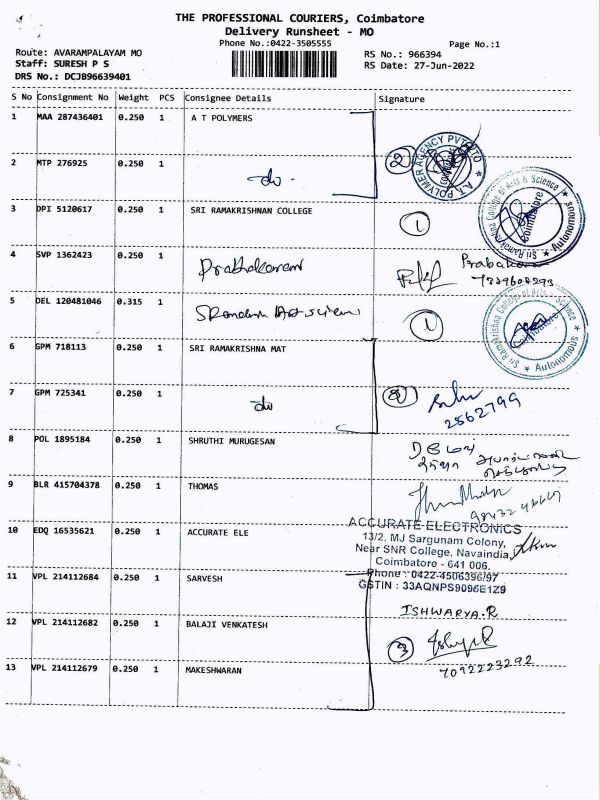 THE PROFESSIONAL COURIERS, Coimbatore
Delivery Runsheet - MO
Phone No.:0422-3505555
Page No.:1
Route: AVARAMPALAYAM MO
RS No.: 966394
Staff: SURESH P S
RS Date: 27-Jun-2022
DRS No.: DCJB96639401
S No Consignment No Weight PCS Consignee Details Signature
1 MAA 287436401 0.250 1 A T POLYMERS
2 MTP 276925 0.250 1 do -
3 DPI 5120617 0.250 1 SRI RAMAKRISHNAN COLLEGE
4 SVP 1362423 0.250 1 Prabhakaran
5 DEL 120481046 0.315 1
6 GPM 718113 0.250 1 SRI RAMAKRISHNA MAT
7 GPM 725341 0.250 1 do
8 POL 1895184 0.250 1 SHRUTHI MURUGESAN
9 BLR 415704378 0.250 1 THOMAS
10 EDQ 16535621 0.250 1 ACCURATE ELE
11 VPL 214112684 0.250 1 SARVESH
12 VPL 214112682 0.250 1 BALAJI VENKATESH
13 VPL 214112679 0.250 1 MAKESHWARAN
2
Sri Ramakrishna College of Arts & Science
Coimbatore
Autonomous
1
1
Sri Ramakrishna College of Arts & Science
Coimbatore
Autonomous
2
2562799
ACCURATE ELECTRONICS
13/2, MJ Sargunam Colony,
Near SNR College, Navaindia,
Coimbatore - 641 006.
Phone : 0422-4506396/97
GSTIN : 33AQNPS9095E1Z9
ISHWARYA.R
3
7092223292